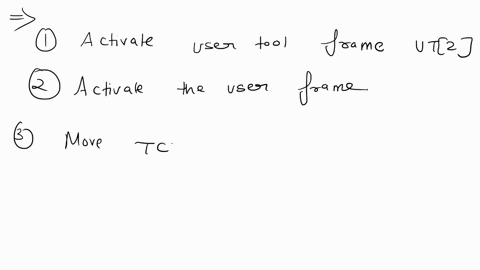 ⇒
① Activate user tool frame UT[2]
② Activate the user frame
③ Move TC